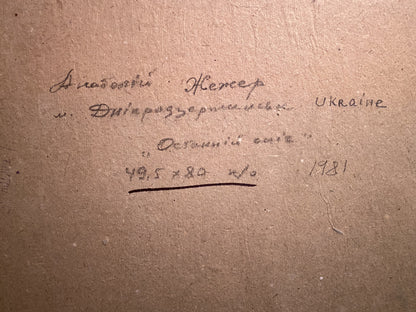 Анатолій Жежер
м. Дніпродзержинськ UKRAINE
„Останній сніг"
49,5 х 80 к/о 1981